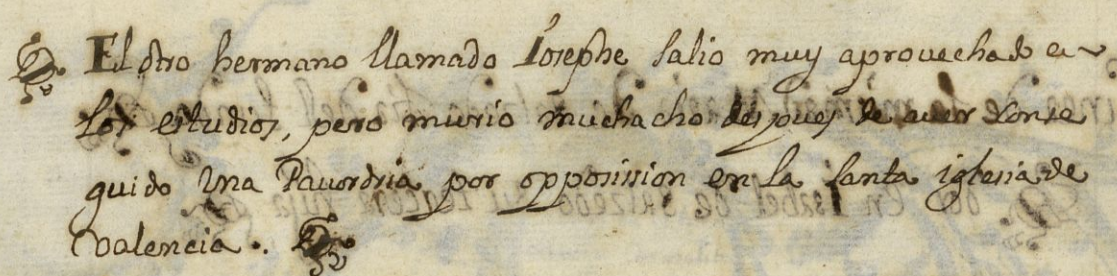 El otro hermano llamado Iosephe salio muy aprovechado en
los estudios, pero murio muchacho despues de auer conse
guido una Pauordria por opposission en la santa iglesia de
valencia.